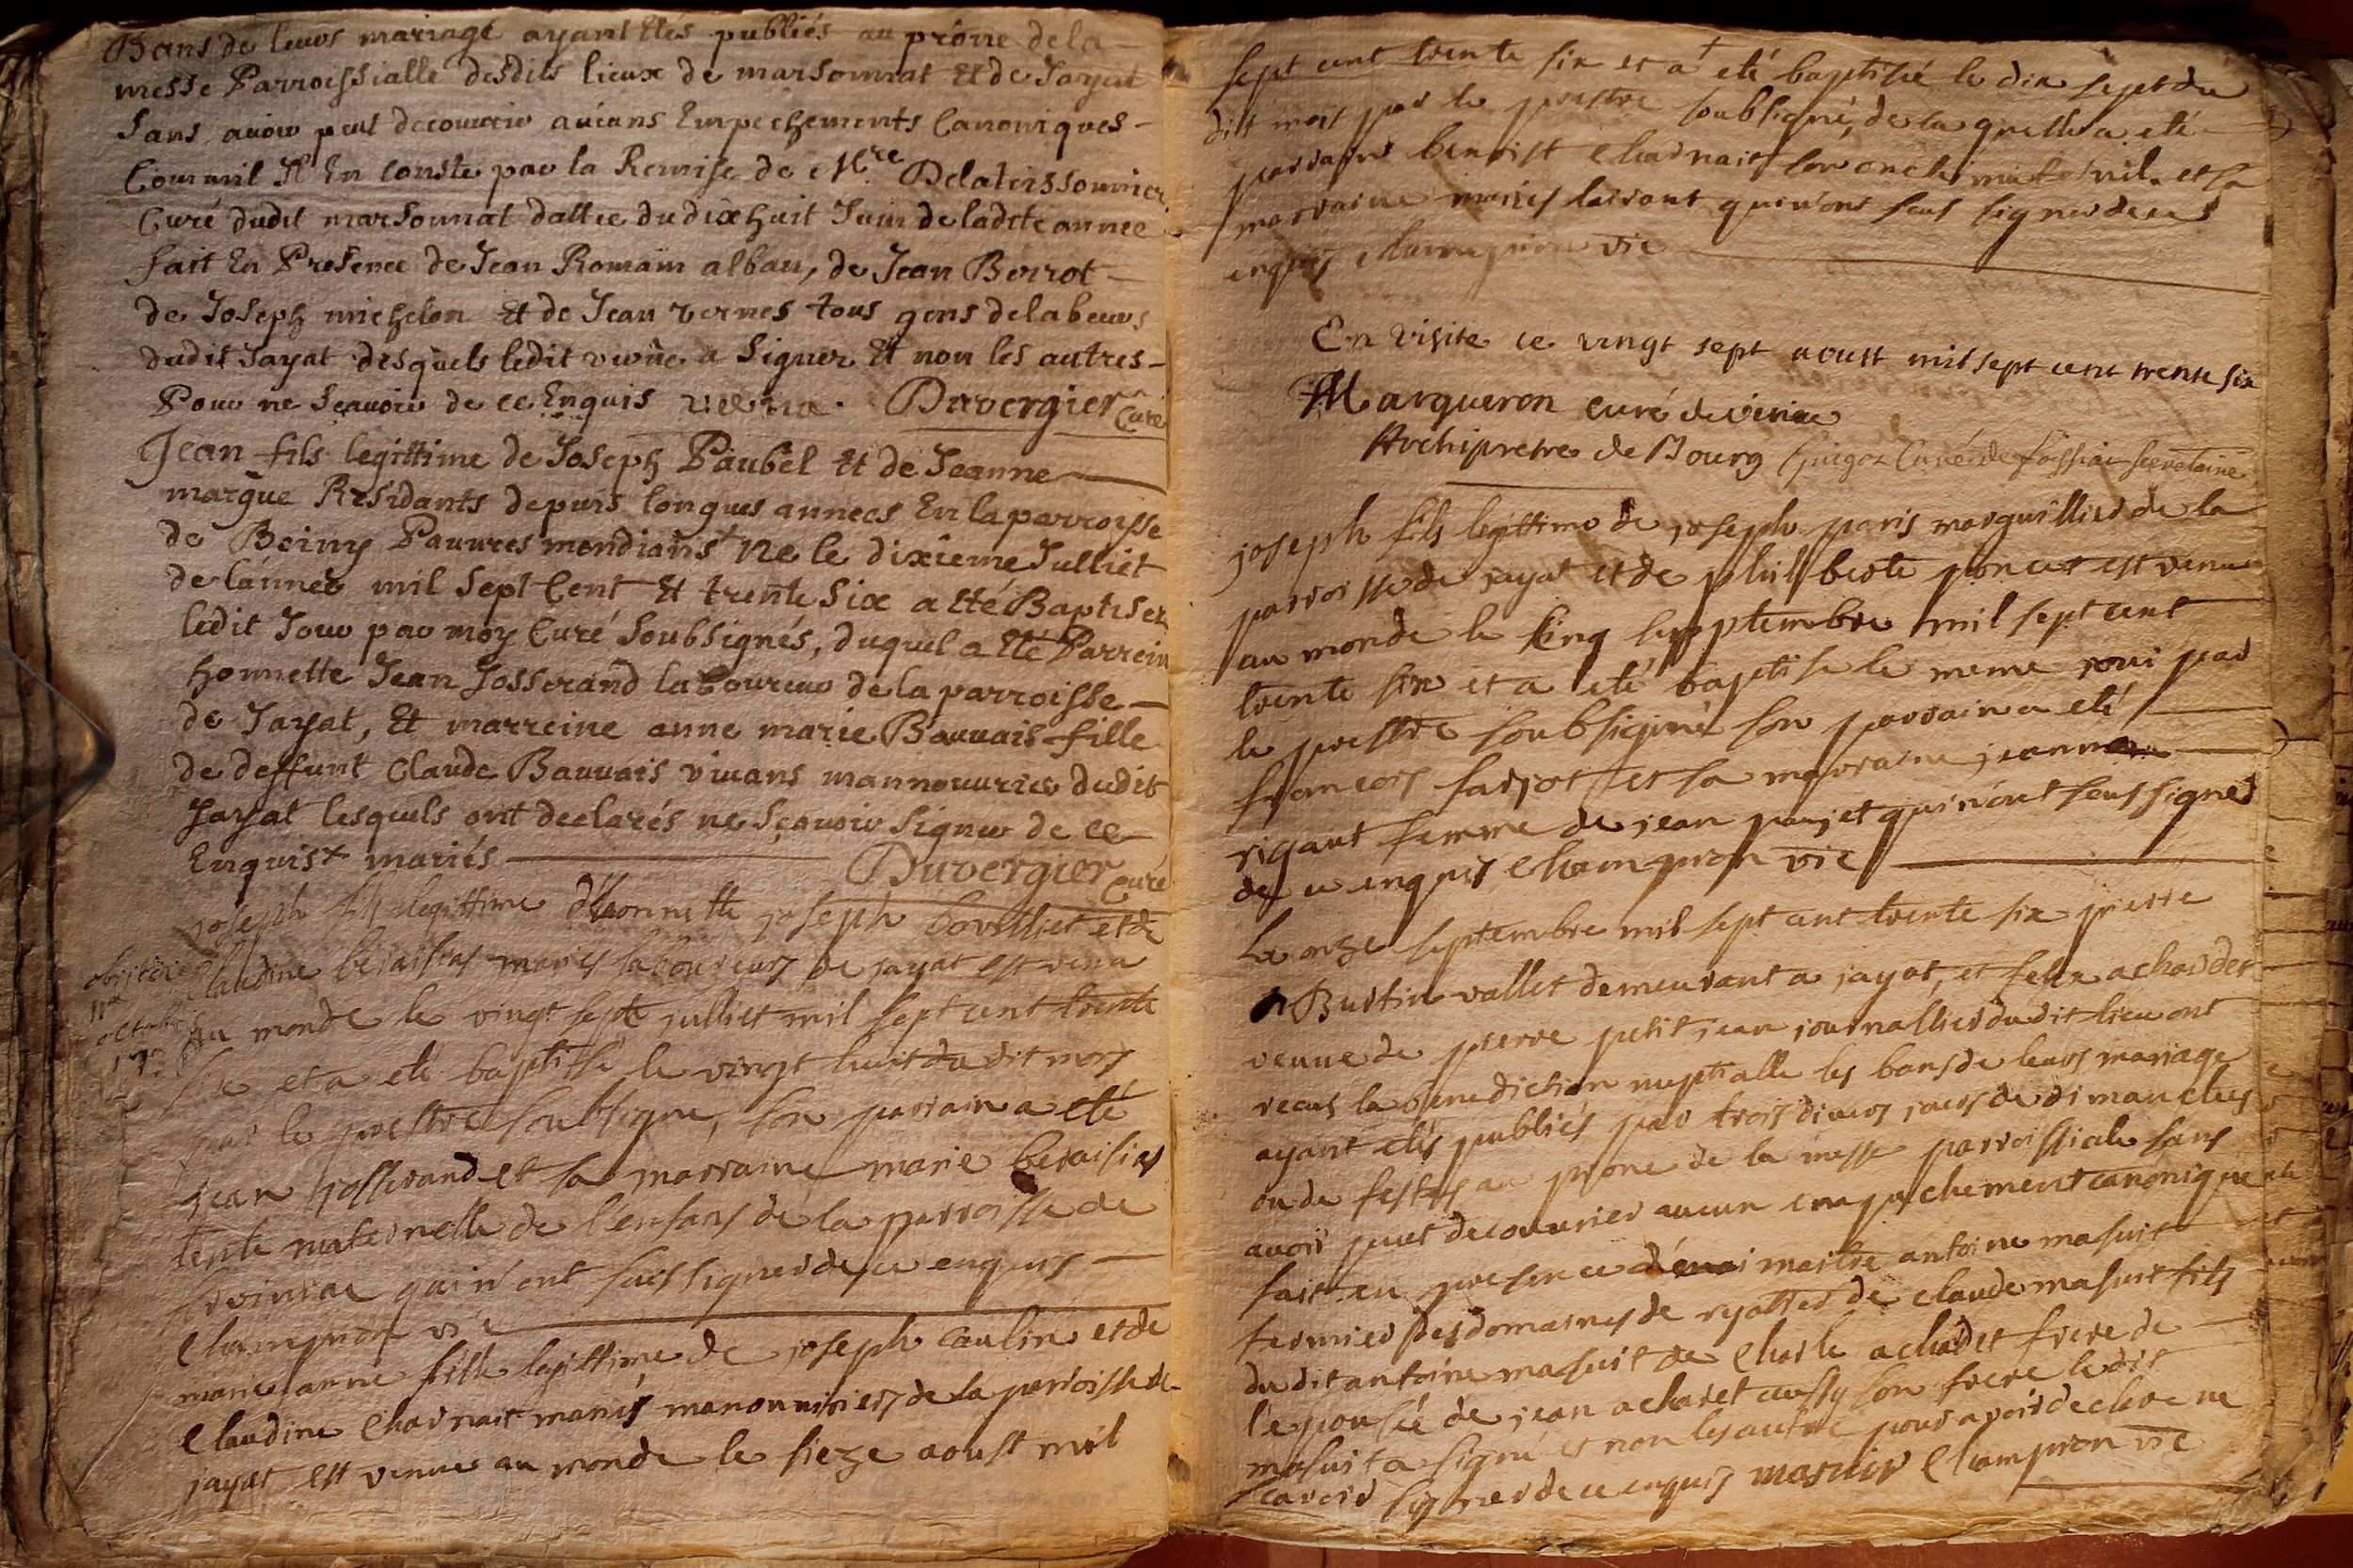 Bans de leurs mariage ayant Etés publiés au prône de la
messe Parroissialle desdits lieux de marsonnat Et de Jayat
Sans avoir peut decouvrir aucuns Empechements Canoniques
Comm'il Il En conste par la Remise de Mre Delateissonnier
Curé dudit marsonnat dattée du dix huit Juin de ladite année
fait En Presence de Jean Romain alban, de Jean Boirot
de Joseph michelon Et de Jean vernes tous gens de labeurs
dudit Jayat desquels ledit verne a Signer Et non les autres
Pour ne Sçavoir de ce Enquis verna. Duvergier Curé
Jean fils legittime de Joseph Paubel Et de Jeanne
margue Residants depuis longues années En la parroisse
de Beiny Pauvres mendians + Né le dixieme Julliet
de lánneé mil Sept Cent Et trente Six a Eté Baptiser
ledit Jour par moy Curé Soubsignés, duquel a Eté Parrein
honnette Jean Josserand laboureur de la parroisse
de Jayat, Et marreine anne marie Bauvais fille
de deffunt Claude Bauvais vivans mannouvrier dudit
Jayat lesquels ont declarés ne Sçavoir Signer de ce
Enquis + mariés Duvergier Curé
joseph fils legittime d'honnette joseph bovilliet et de
Claudine beraisias mariés laboureurs de jayat est venu
au monde le vingt sept julliet mil sept cent trente
six et a eté baptissé le vingt huit du dit mois
par le prestre soubsigné, son parrain a eté
jean josserand et sa marraine marie beraisias
tente maternelle de l'enfans de la parroisse de
qui n'ont sus signer de ce enquis
Champion vic
marie anne fille legittime de joseph caulin et de
Claudine Charnait mariés manouvriers de la parroisse de
jayat est venue au monde le sieze aoust mil
sept cent trente six et a + eté baptisée le dix sept du
dit mois par le prestre soubsigné, de la quelle a eté
parrain benoist Charnait son oncle maternel et sa
marraine mariés qui n'ont seus signer de ce
enquis Champion vic
En visite ce vingt sept aoust mil sept cent trente six
Marqueron curé de viriac
Archipretre de Bourg Guigoz Curé de foissiac secretaire
joseph fils legittime de joseph paris marguillier de la
parroisse de jayat et de philiberte poncet est venu
au monde le sinq septembre mil sept cent
trente six et a eté baptisé le meme jour par
le prestre soubsigné son parrain a eté
francois farjot et sa marraine jeanne
rigaut femme de jean paujet qui n'ont seus signer
de ce enquis Champion vic
Le onze septembre mil sept cent trente six pierre
Burtin vallet demeurant a jayat, et felix achardet
veuve de pierre petitjean journallier du dit lieu ont
recus la benediction nuptialle les bans de leurs mariage
ayant etés publiés par trois divers jours de dimanches
ou de festes au prone de la messe parroissiale sans
avoir peut decouvrier aucun empechement canonique
fait en presence de maitre antoine masuit
fermier des domaines de de claude masuit fils
du dit antoine masuit de Charle achardet frere de
l'epousée de jean achardet aussy son frere le dit
masuit a signé et non les autre pour avoir declare ne
scavoir signer de ce enquis masuit Champion vic